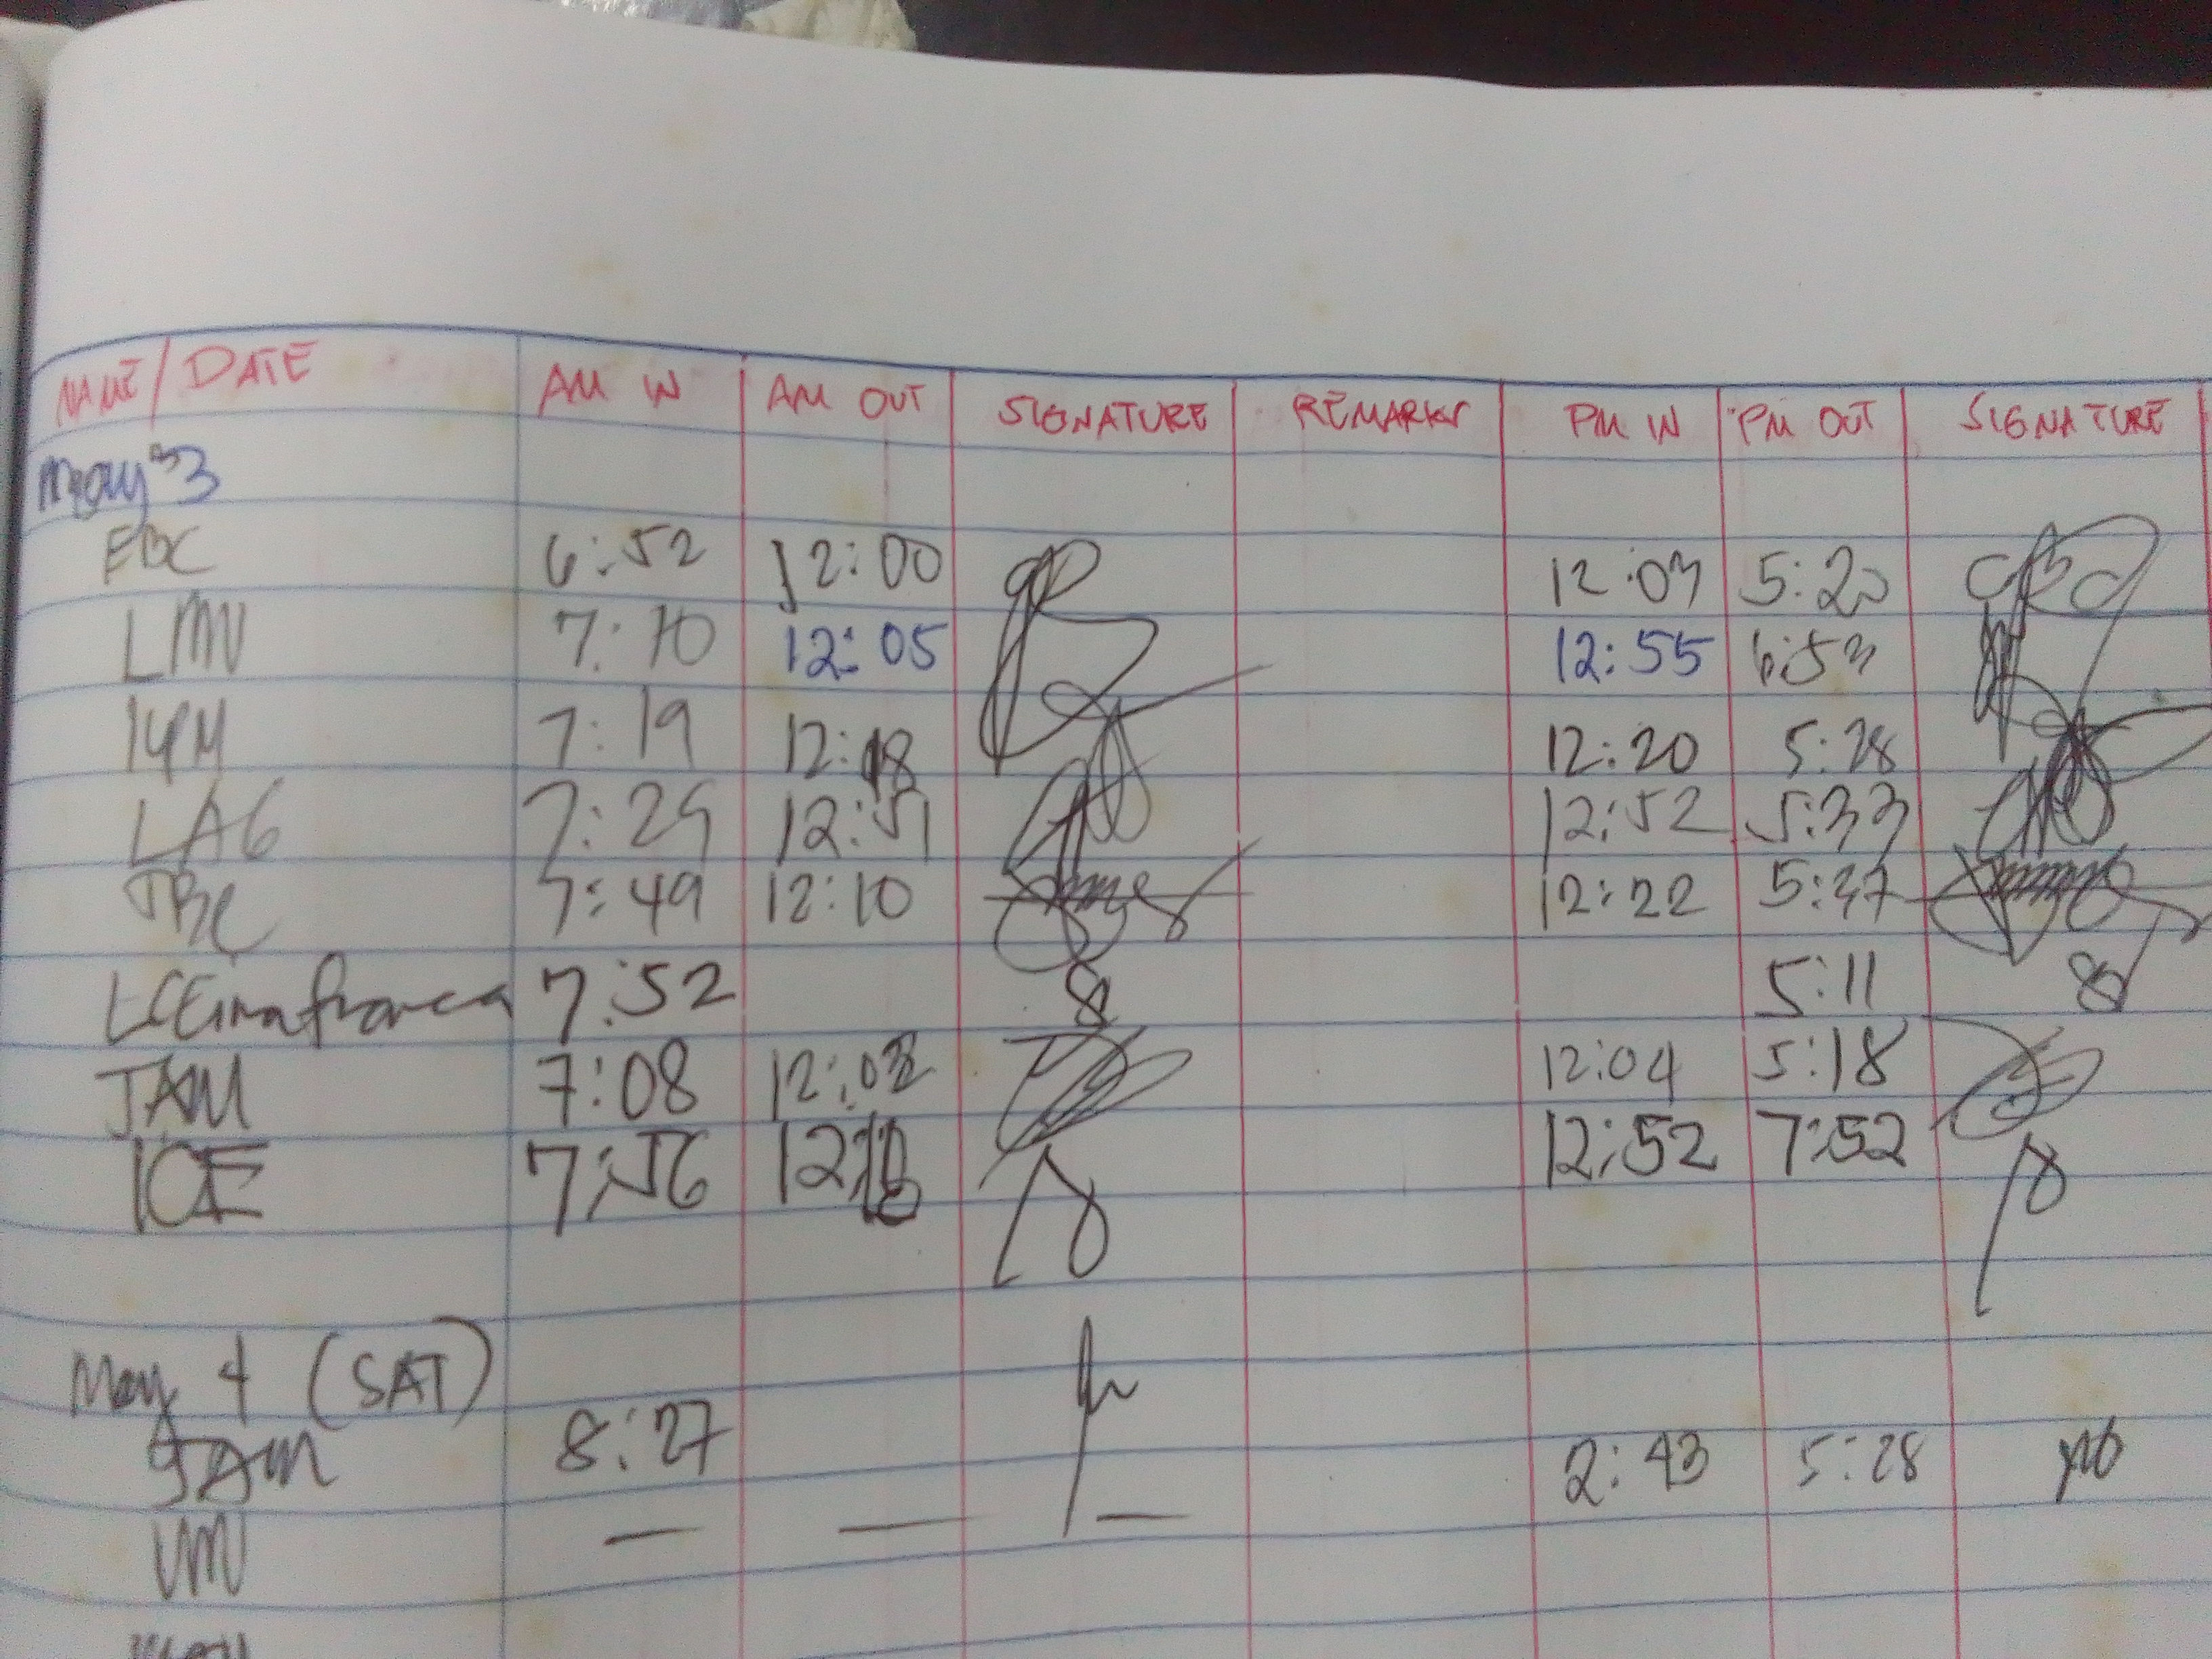 NAME/DATE AM IN AM OUT SIGNATURE REMARKS PM IN PM OUT SIGNATURE
May 3
EBC 6:52 12:00 12:03 5:20
LMV 7:10 12:05 12:55 6:53
7:19 12:18 12:20 5:28
LAG 7:25 12:51 12:52 5:33
JBC 7:49 12:10 12:22 5:37
7:52 5:11
JAM 7:08 12:03 12:04 5:18
ICE 7:56 12:52 7:52
May 4 (SAT)
JAM 8:27
LMV — — — 2:43 5:28